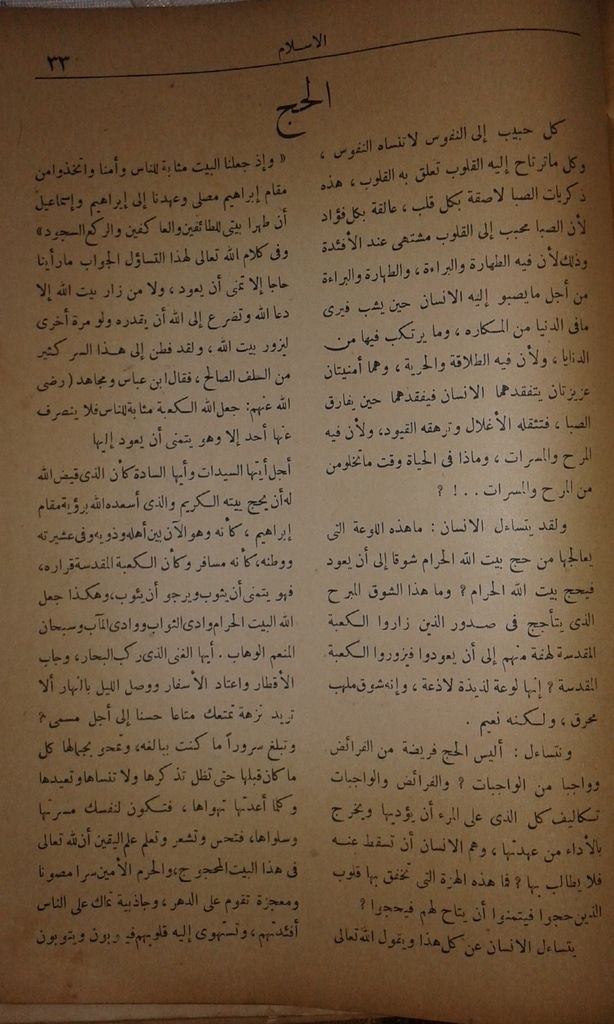 الاسلام
٣٣
الحج
كل حبيب إلى النفوس لا تنساه النفوس ،
وكل ما ترتاح إليه القلوب تعلق به القلوب ، هذه
ذكريات الصبا لاصقة بكل قلب ، عالقة بكل فؤاد
لأن الصبا محبب إلى القلوب مشتهى عند الأفئدة
وذلك لأن فيه الطهارة والبراءة ، والطهارة والبراءة
من أجل ما يصبو إليه الانسان حين يشب فيرى
مافى الدنيا من المكاره ، وما يرتكب فيها من
الدنايا ، ولأن فيه الطلاقة والحرية ، وهما أمنيتان
عزيزتان يتفقدهما الانسان فيفقدهما حين يفارق
الصبا ، فتثقله الأغلال وترهقه القيود، ولأن فيه
المرح والمسرات ، وماذا فى الحياة وقت ما تخلو من
من المرح والمسرات . . . ! ؟
ولقد يتساءل الانسان : ماهذه اللوعة التى
يعالجها من حج بيت الله الحرام شوقا إلى أن يعود
فيحج بيت الله الحرام ؟ وما هذا الشوق المبرح
الذى يتأجج فى صدور الذين زاروا الكعبة
المقدسة لهفة منهم إلى أن يعودوا فيزوروا الكعبة
المقدسة ؟ إنها لوعة لذيذة لاذعة ، وإنه شوق ملهب
محرق ، ولكنه نعيم .
ونتساءل : أليس الحج فريضة من الفرائض
وواجبا من الواجبات ؟ والفرائض والواجبات
تكاليف كل الذى على المرء أن يؤديها ويخرج
بالأداء من عهدتها ، وهم الانسان أن تسقط عنه
فلا يطالب بها ؟ فما هذه الهزة التى تخفق بها قلوب
الذين حجوا فيتمنوا أن يتاح لهم فيحجوا ؟
يتساءل الانسان عن كل هذا ويقول الله تعالى
« وإذ جعلنا البيت مثابة للناس وأمنا واتخذوا من
مقام إبراهيم مصلى وعهدنا إلى إبراهيم وإسماعيل
أن طهرا بيتى للطائفين والعاكفين والركع السجود»
وفى كلام الله تعالى لهذا التساؤل الجواب مارأينا
حاجا إلا تمنى أن يعود ، ولا من زار بيت الله إلا
دعا الله وتضرع إلى الله أن يقدره ولو مرة أخرى
ليزور بيت الله ، ولقد فطن إلى هذا السر كثير
من السلف الصالح ، فقال ابن عباس ومجاهد (رضى
الله عنهم: جعل الله الكعبة مثابة للناس فلا ينصرف
عنها أحد إلا وهو يتمنى أن يعود إليها
أجل أيتها السيدات وأيها السادة كأن الذى قيض الله
له أن يحج بيته الكريم والذى أسعده الله برؤية مقام
إبراهيم ، كأنه وهو الآن بين أهله وذويه وفى عشيرته
ووطنه، كأنه مسافر وكأن الكعبة المقدسة قراره،
فهو يتمنى أن يثوب ويرجو أن يثوب، وهكذا جعل
الله البيت الحرام وادى الثواب ووادى المآب وسبحان
المنعم الوهاب . أيها الغنى الذى ركب البحار ، وجاب
الأقطار واعتاد الأسفار ووصل الليل بالنهار ألا
تريد نزهة تمتعك متاعا حسنا إلى أجل مسمى ؟
وتبلغ سروراً ما كنت ببالغه، وتمحو بجمالها كل
ما كان قبلها حتى تظل تذكرها ولا تنساها وتعيدها
وكلما أعدتها تهواها ، فتكون لنفسك مسرتها
وسلواها، فتحس وتشعر وتعلم علم اليقين أن لله تعالى
فى هذا البيت المحجوج، والحرم الأمين سرا مصونا
ومعجزة تقوم على الدهر ، وجاذبية تملك على الناس
أفئدتهم ، وتستهوى إليه قلوبهم ويتوبون